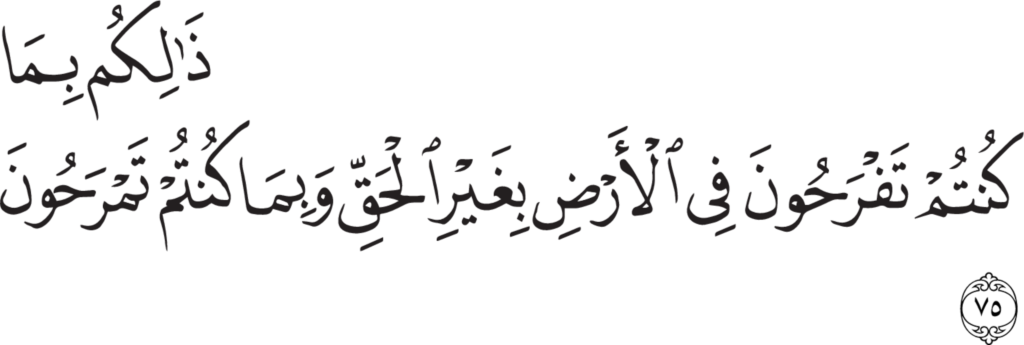 ذَٰلِكُم بِمَا
كُنتُمْ تَفْرَحُونَ فِى ٱلْأَرْضِ بِغَيْرِ ٱلْحَقِّ وَبِمَا كُنتُمْ تَمْرَحُونَ
٧٥